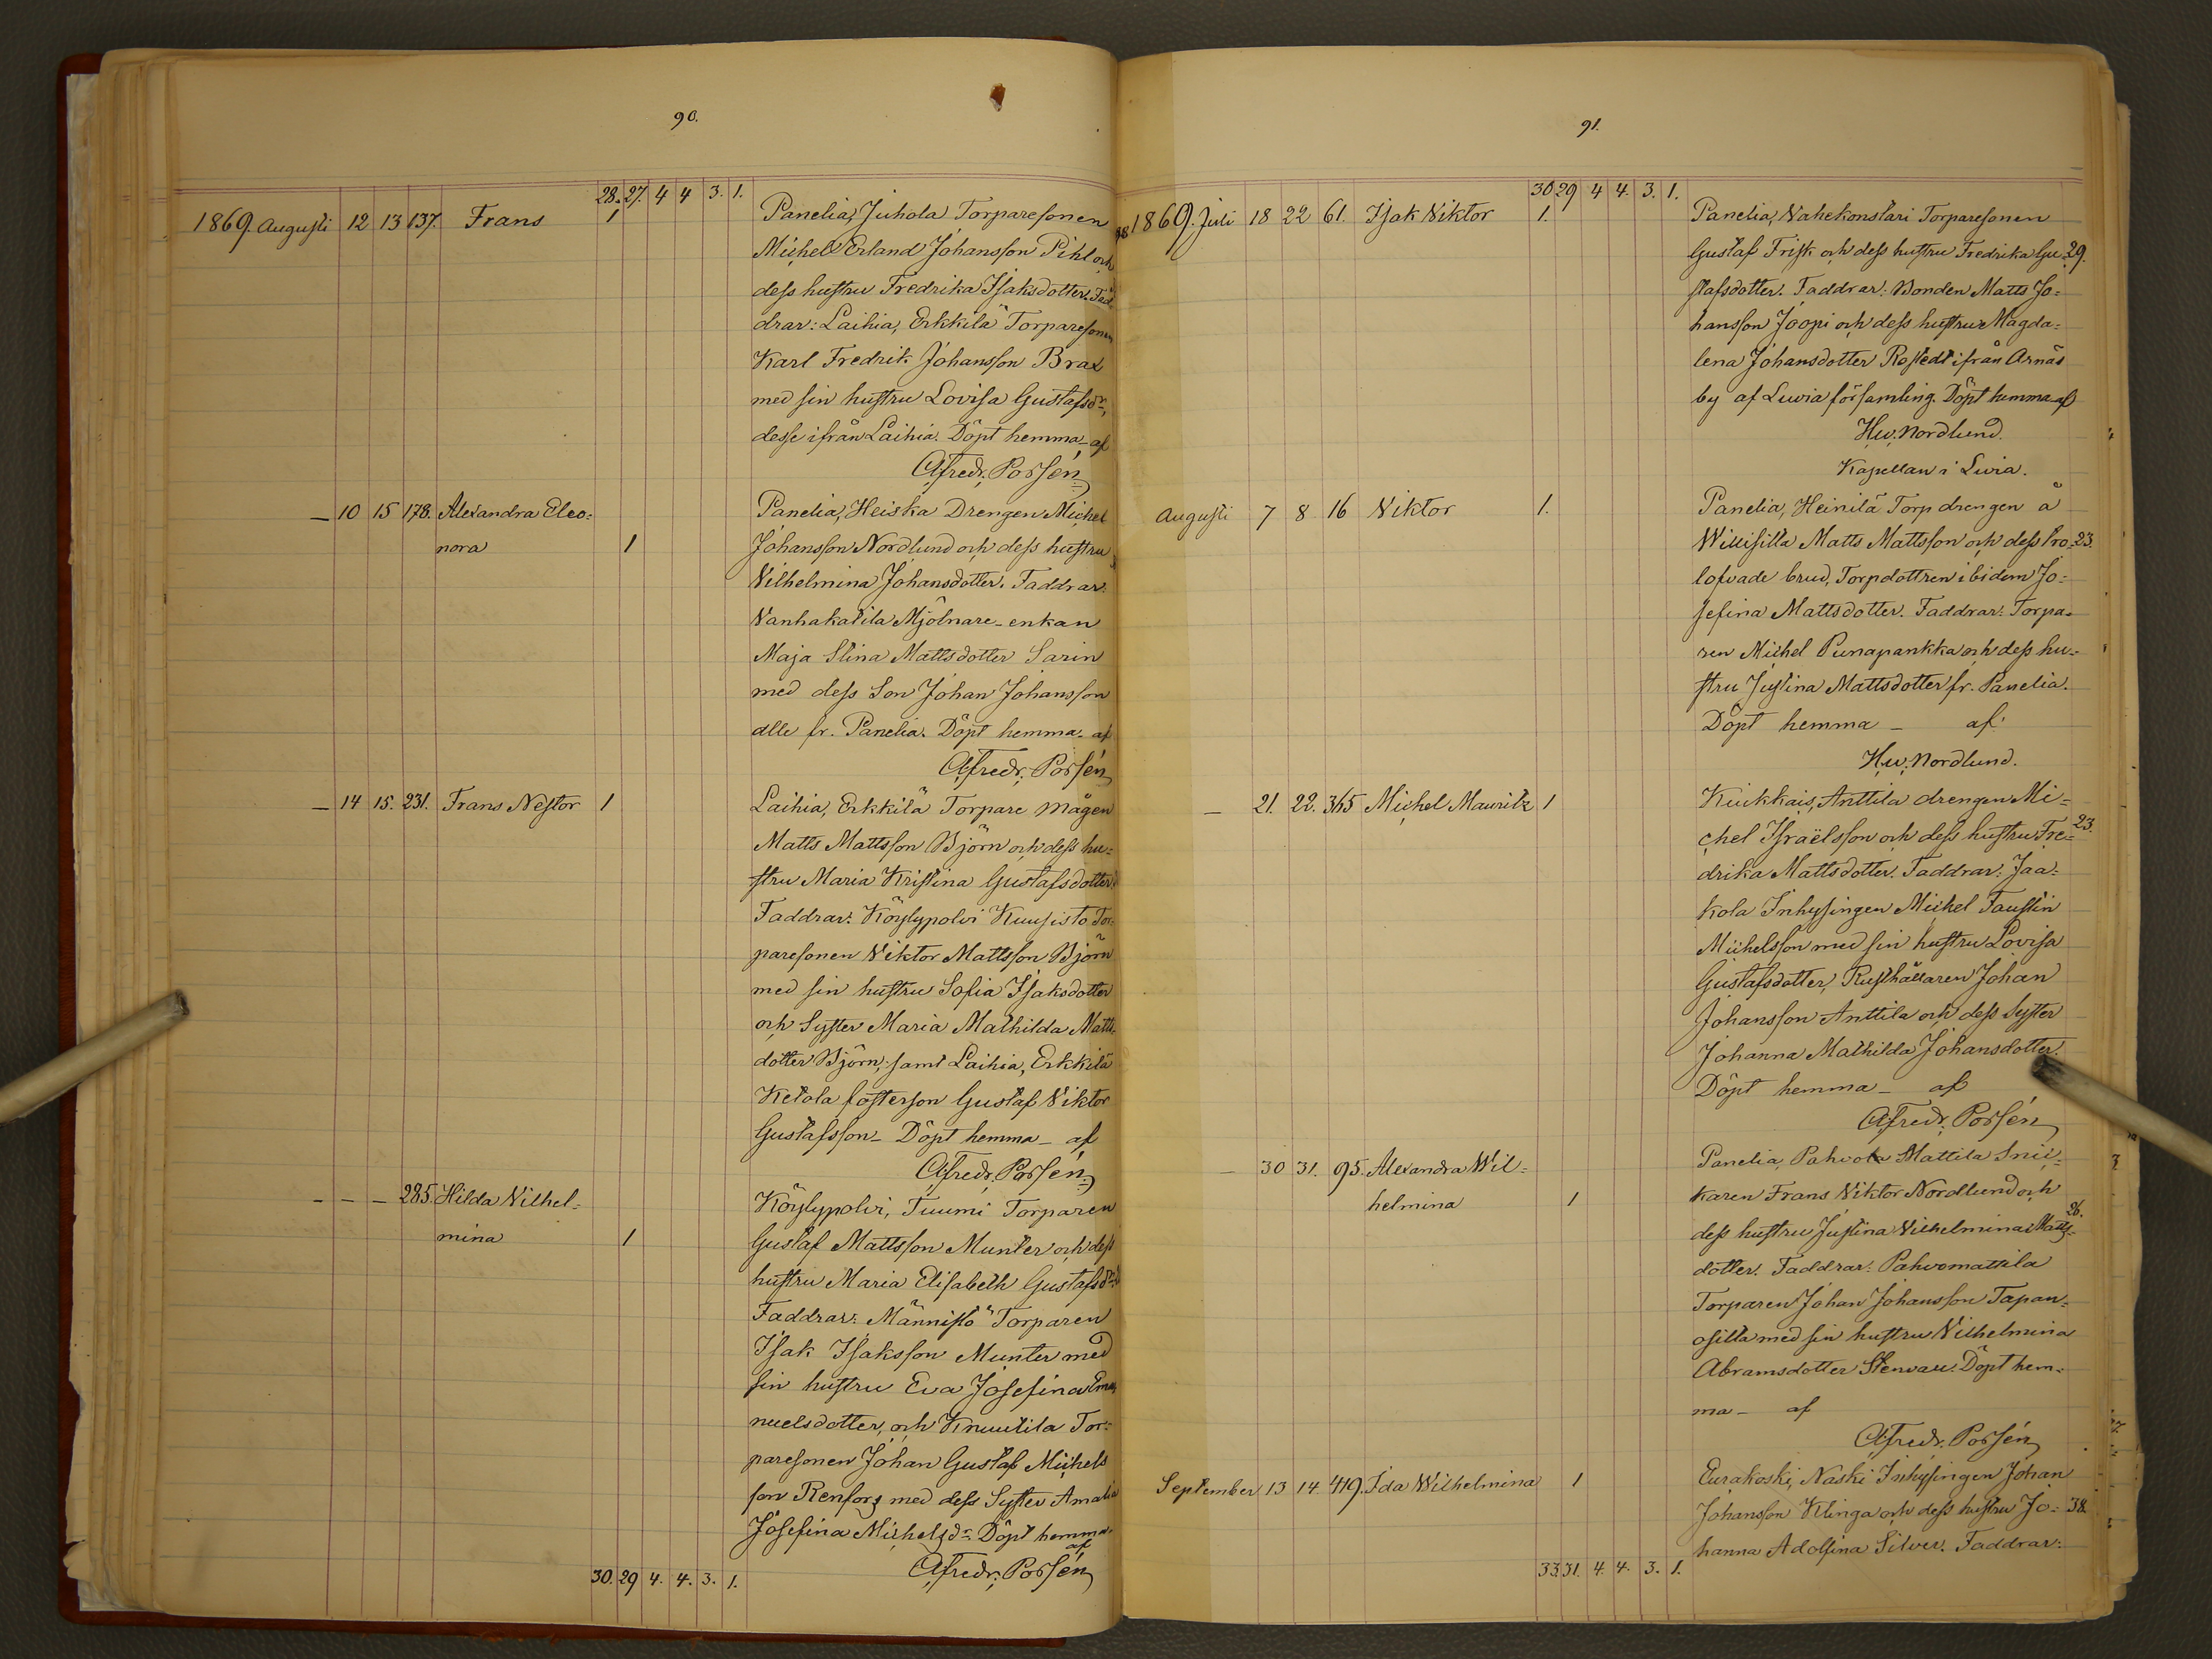 90.
28. 27. 4 4 3. 1.
1869. Augusti 12 13 137. Frans 1 Panelia, Juhola Torparesonen
Michel Erland Johansson Pihl och
dess hustru Fredrika Isaksdotter. Fad
drar: Laihia, Erkkilä Torparesonen
Karl Fredrik Johansson Brax
med sin hustru Lovisa Gustafsdr,
desse ifrån Laihia. Döpt hemma - af
Afredr. Porsén
— 10 15 178. Alexandra Eleo= Panelia, Heiska Drengen Michel
nora 1 Johansson Nordlund och dess hustru
Vilhelmina Johansdotter. Faddrar:
Vanhakatila Mjölnare-enkan
Maja Stina Mattsdotter Sarin
med dess Son Johan Johansson
alle fr. Panelia. Döpt hemma - af
Afredr. Porsén
— 14 15. 231. Frans Nestor 1 Laihia, Erkkilä Torpare mågen
Matts Mattsson Björn och dess hu=
stru Maria Kristina Gustafsdotter
Faddrar: Köylypolvi Kuusisto Tor=
paresonen Viktor Mattsson Björn
med sin hustru Sofia Isaksdotter
och Syster Maria Mathilda Matts
dotter Björn, samt Laihia, Erkkilä
Ketola fosterson Gustaf Viktor
Gustafsson - Döpt hemma - af
Afredr. Porsén
- - - 285. Hilda Vilhel= Köylypolvi, Tuumi Torparen
mina 1 Gustaf Mattsson Munter och dess
hustru Maria Elisabeth Gustafsdr
Faddrar: Männistö Torparen
Isak Isaksson Munter med
sin hustru Eva Josefina Ema
nuelsdotter, och Knuutila Tor=
paresonen Johan Gustaf Michels
son Renfors med dess Syster Amalia
Josefina Michelsdr Döpt hemma
af
Afredr. Porsén
30. 29 4. 4. 3. 1.
91.
30 29 4 4. 3. 1.
1869. Juli 18 22 61. Isak Viktor 1. Panelia, Vahekonstari Torparesonen
Gustaf Frisk och dess hustru Fredrika Gu= 29.
stafsdotter. Faddrar: Bonden Matts Jo=
hansson Joopi och dess hustru Magda=
lena Johansdotter Rostedt ifrån Arnäs
by af Luvia församling. Döpt hemma af
Hw. Nordlund.
Kapellan i Luvia.
Augusti 7 8 16 Viktor 1. Panelia, Heinilä Torpdrengen å
Willisilta Matts Mattsson och dess tro= 23.
lofvade brud, Torpdottren ibidem Jo=
sefina Mattsdotter. Faddrar: Torpa=
ren Michel Punapankka och dess hu=
stru Justina Mattsdotter fr. Panelia.
Döpt hemma - af
Hw. Nordlund.
— 21. 22. 365 Michel Mauritz 1 Kiukkais, Anttila drengen Mi=
chel Israëlsson och dess hustru Fre= 23.
drika Mattsdotter. Faddrar: Jaa=
kola Inhysingen Michel Faustin
Michelsson med sin hustru Lovisa
Gustafsdotter, Rusthållaren Johan
Johansson Anttila och dess Syster
Johanna Mathilda Johansdotter.
Döpt hemma - af
Afredr. Porsén
— 30 31. 95. Alexandra Wil= Panelia, Pahvola Mattila Snic=
helmina 1 karen Frans Viktor Nordlund och
dess hustru Justina Vilhelmina Matts= 26.
dotter. Faddrar: Pahvomattila
Torparen Johan Johansson Tapan=
osilta med sin hustru Vilhelmina
Abramsdotter Stenvall. Döpt hem=
ma - af
Afredr. Porsén
September 13 14. 419. Ida Wilhelmina 1 Eurakoski, Naski Inhysingen Johan
Johansson Klinga och dess hustru Jo= 38.
hanna Adolfina Silver. Faddrar:
33. 31. 4. 4. 3. 1.